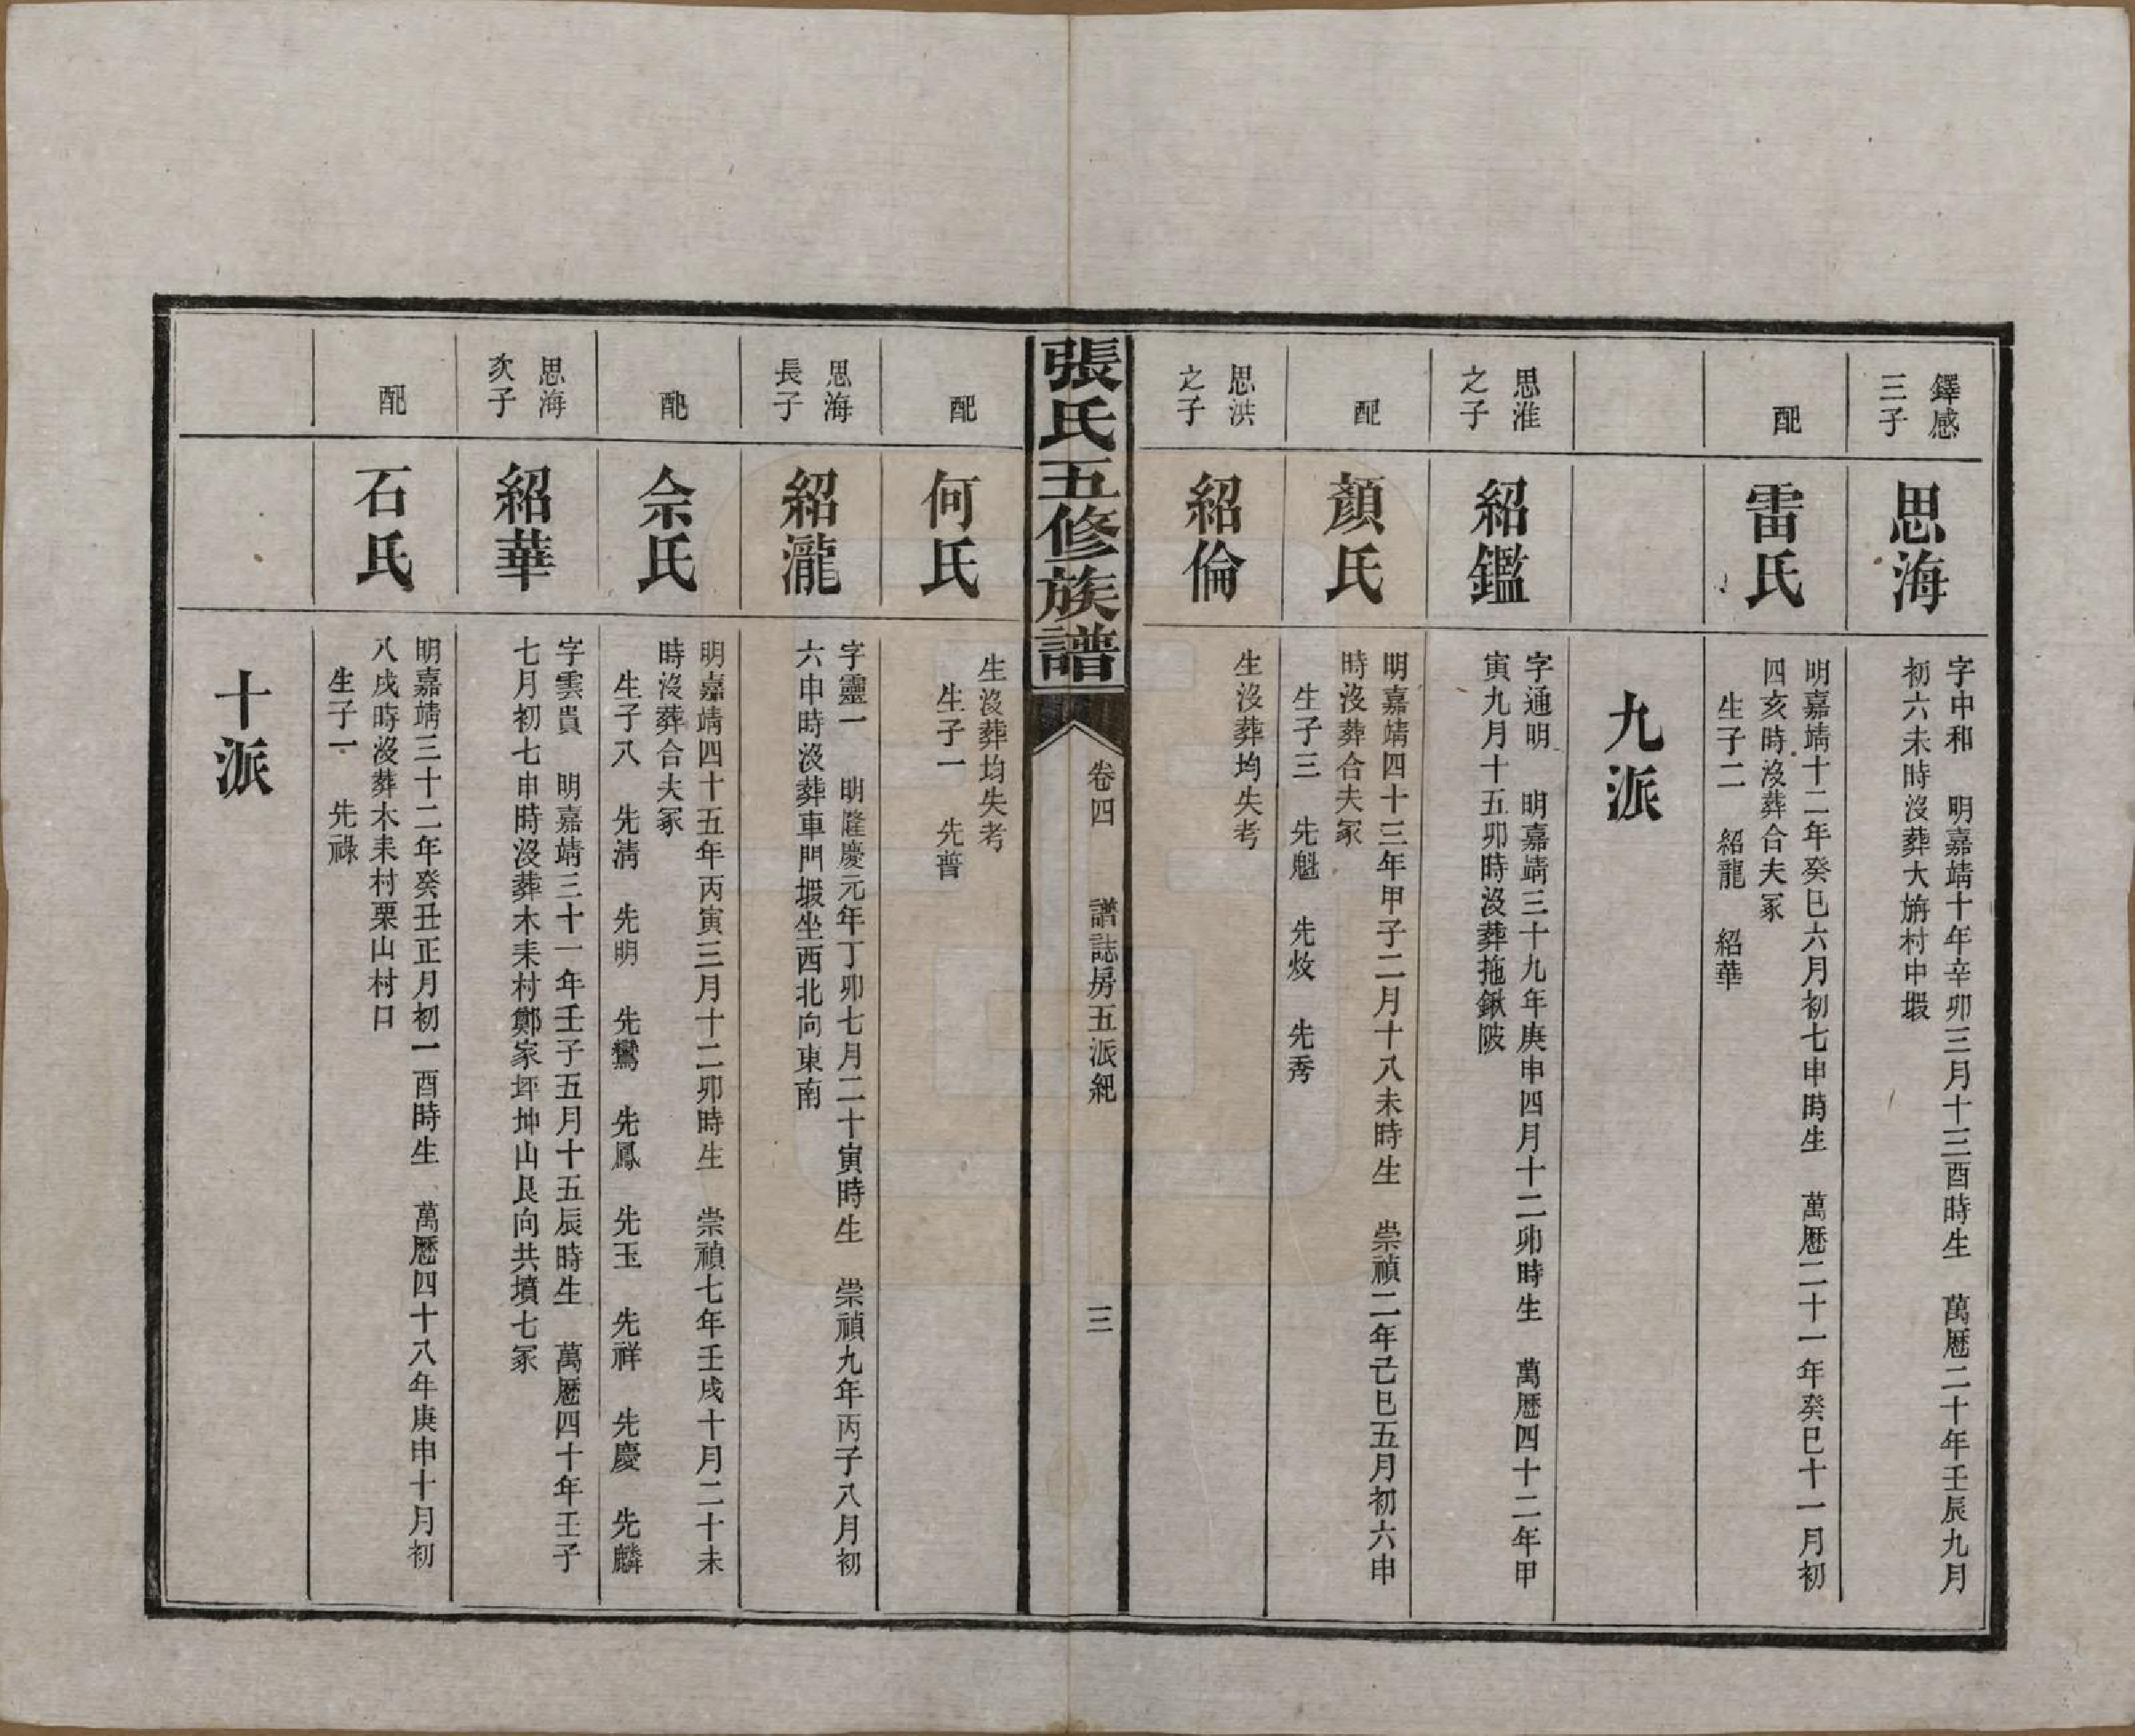 鐸感
三子
思海
字中和　明嘉靖十年辛卯三月十三酉時生　萬歷二十年壬辰九月
初六未時沒葬大旃村中塅
配
雷氏
明嘉靖十二年癸巳六月初七申時生　萬歷二十一年癸巳十一月初
四亥時沒葬合夫冢
生子二　紹龍　紹華
九派
思淮
之子
紹鑑
字通明　明嘉靖三十九年庚申四月十二卯時生　萬歷四十二年甲
寅九月十五卯時沒葬拖鍬陂
配
顏氏
明嘉靖四十三年甲子二月十八未時生　崇禎二年己巳五月初六申
時沒葬合夫冢
生子三　先魁　先炆　先秀
思洪
之子
紹倫
生沒葬均失考
張氏五修族譜
卷四　譜誌房五派紀　三
配
何氏
生沒葬均失考
生子一　先普
思海
長子
紹瀧
字靈一　明隆慶元年丁卯七月二十寅時生　崇禎九年丙子八月初
六申時沒葬車門塅坐西北向東南
配
佘氏
明嘉靖四十五年丙寅三月十二卯時生　崇禎七年壬戌十月二十未
時沒葬合夫冢
生子八　先清　先明　先鸞　先鳳　先玉　先祥　先慶　先麟
思海
次子
紹華
字雲貴　明嘉靖三十一年壬子五月十五辰時生　萬歷四十年壬子
七月初七申時沒葬木耒村鄭家坪坤山艮向共墳七冢
配
石氏
明嘉靖三十二年癸丑正月初一酉時生　萬歷四十八年庚申十月初
八戌時沒葬木耒村栗山村口
生子一　先祿
十派